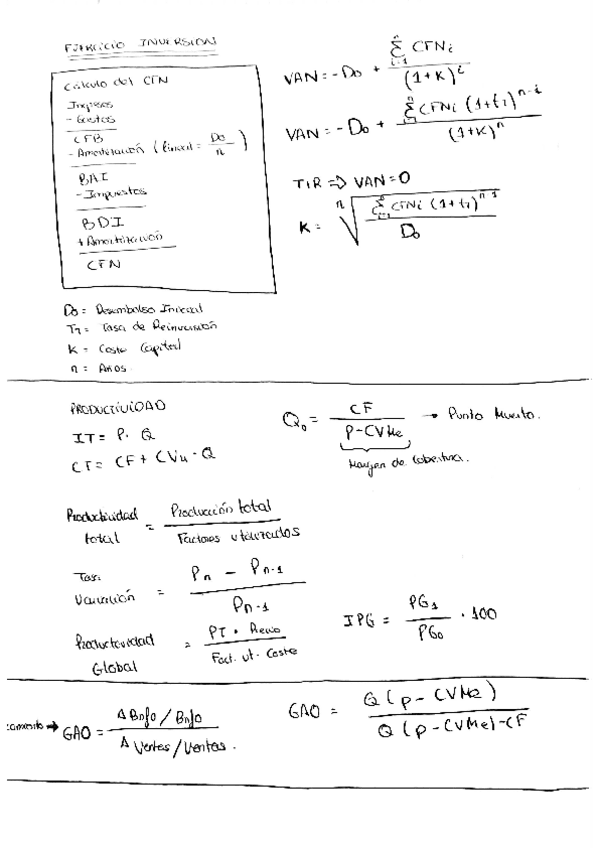 EJERCICIO INVERSION
Cálculo del CFN
Ingresos
- Gastos
CFB
- Amortización (lineal = Do/n)
BAI
- Impuestos
BDI
+ Amortización
CFN
VAN = - Do + Σ(i=1, n) CFNi / (1+K)^i
VAN = - Do + Σ(i=1, n) CFNi (1+tr)^(n-i) / (1+K)^n
TIR ⇒ VAN = 0
K = ⁿ√( Σ(i=1, n) CFNi (1+tr)^(n-i) / Do )
Do = Desembolso Inicial
Tr = Tasa de Reinversión
K = Coste Capital
n = Años.
PRODUCTIVIDAD
IT = P · Q
CT = CF + CVu · Q
Q₀ = CF / (P - CVMe) → Punto Muerto.
Margen de Cobertura.
Productividad total = Producción total / Factores utilizados
Tasa Variación = (Pn - Pn-1) / Pn-1
Productividad Global = PT · Precio / Fact. ut · Coste
IPG = PG₁ / PG₀ · 100
GAO = Δ Bnfo / Bnfo / Δ Ventas / Ventas.
GAO = Q (p - CVMe) / Q (p - CVMe) - CF